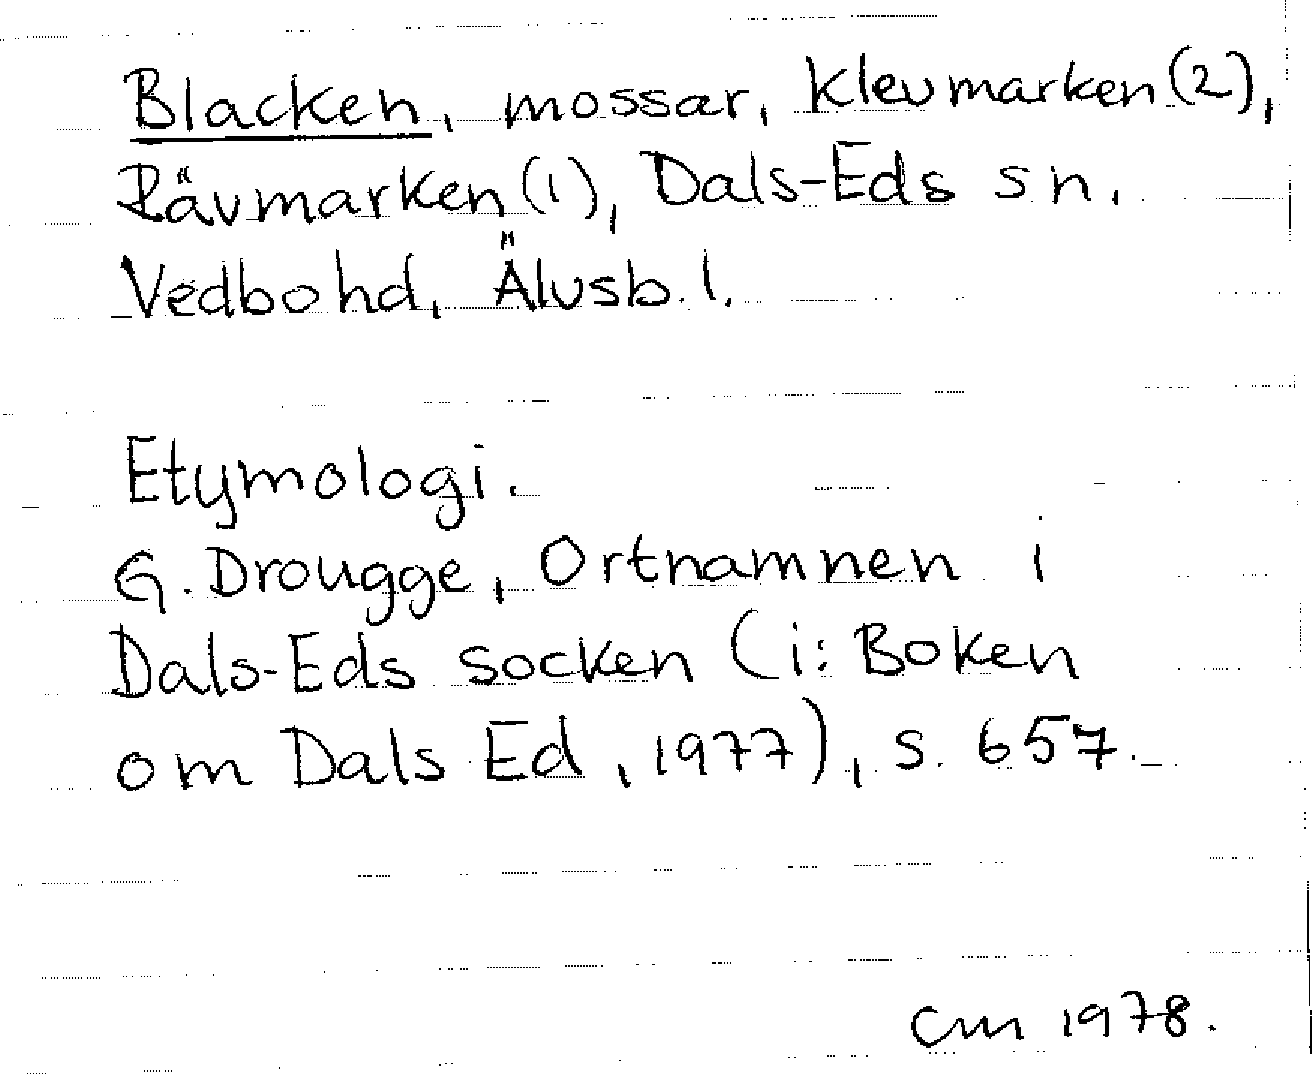 Blacken, mossar, Klevmarken (2),
Rävmarken (1), Dals-Eds sn,
Vedbo hd, Älvsb. l.
Etymologi.
G. Drougge, Ortnamnen i
Dals-Eds socken (i: Boken
om Dals Ed, 1977), s. 657.
CM 1978.